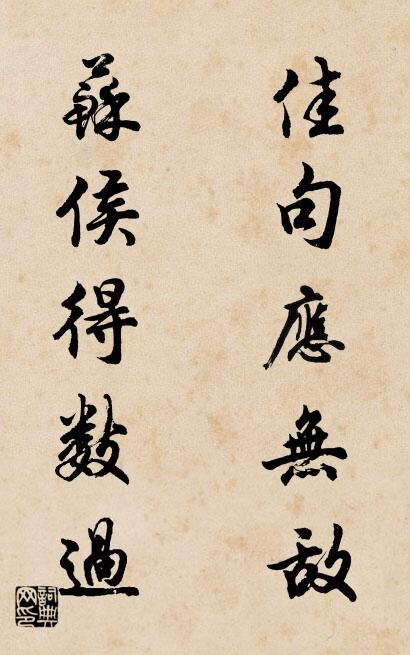 佳句應無敵
蘇侯得數過
詞典网印